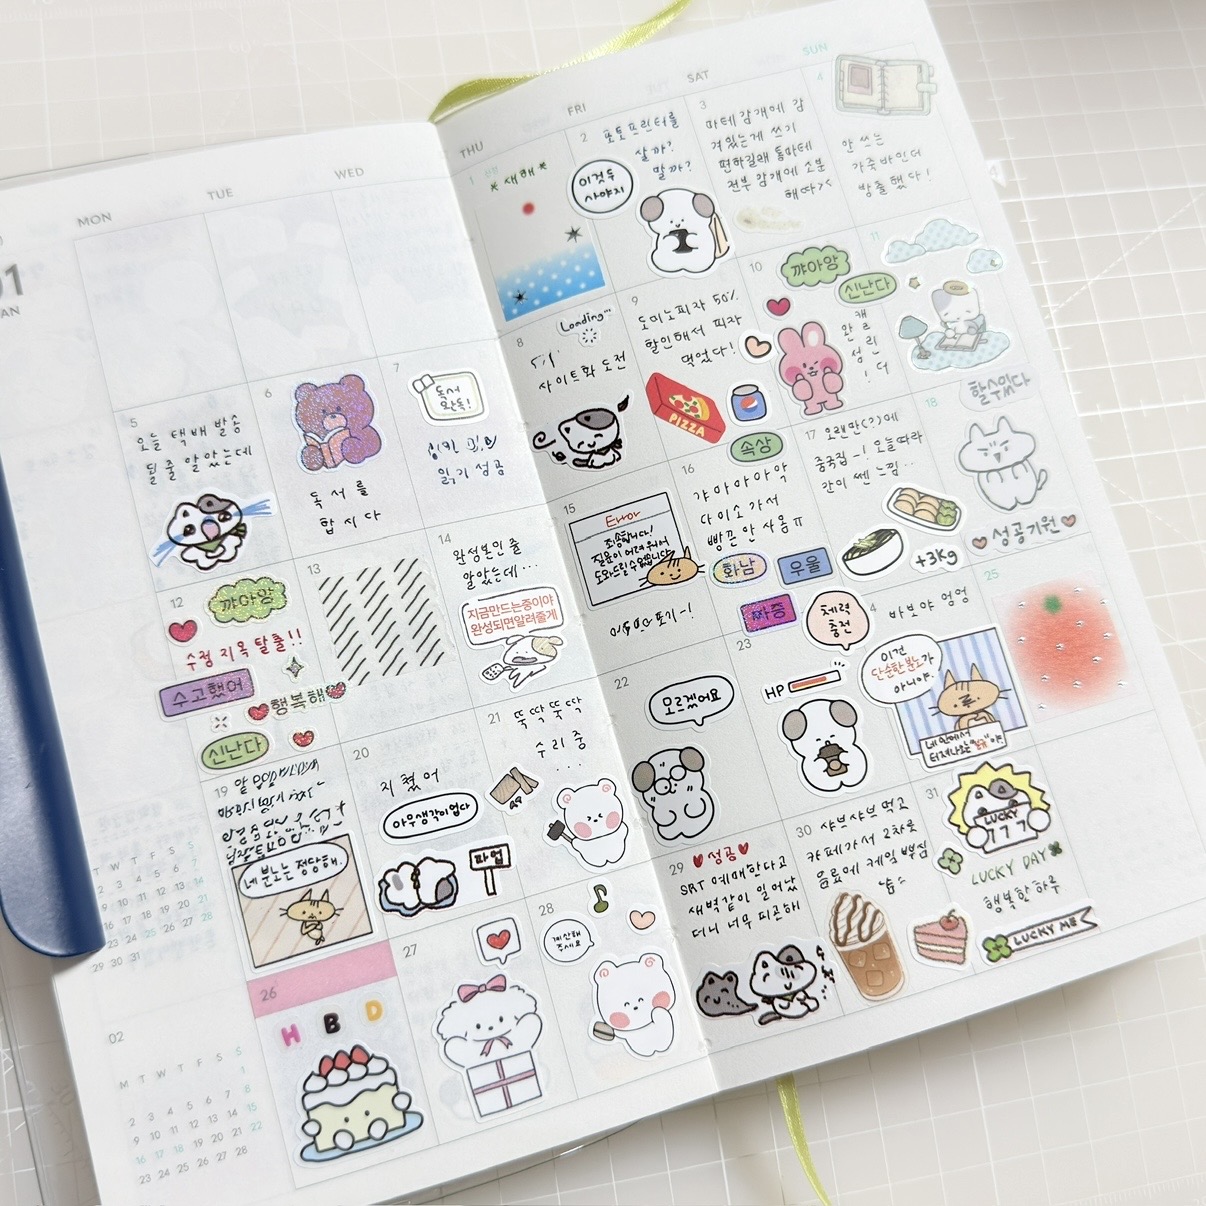 01
JAN
MON
TUE
WED
THU
FRI
SAT
SUN
1
*새해*
2
포토프린터를
살까?
말까?
이것두
사야지
3
마테 감개에 감
겨있는게 쓰기
편하길래 통마테
전부 감개에 소분
해따><
4
안 쓰는
가죽바인더
방출했다!
5
오늘 택배 발송
될 줄 알았는데
6
독서를
합시다
7
독서
완독!
읽기 성공
8
Loading...
사이트화 도전
9
도미노피자 50%
할인해서 피자
먹었다!
PIZZA
10
꺄아앙
신난다
캐르린더
완성!
11
12
꺄아앙
수정 지옥 탈출!!
수고했어
행복해
신난다
13
14
완성본인 줄
알았는데...
지금만드는중이야
완성되면알려줄게
15
Error
죄송합니다!
질문이 어려워서
도와드릴 수 없습니다
16
속상
갸아아아악
다이소 가서
빵끈 안 사옴ㅠ
화남
우울
짜증
17
오랜만(?)에
중국집-! 오늘따라
간이 쎈 느낌...
+3kg
18
할수있다
성공기원
19
네 분노는 정당해.
20
지쳤어
아무생각이없다
파업
21
뚝딱뚝딱
수리 중
...
22
모르겠어요
23
체력
충전
HP
4
바보야 엉엉
이건
단순한 분노가
아니야.
네 안에서
25
26
HBD
27
28
계산해
주세요
29
성공
SRT 예매한다고
새벽같이 일어났
더니 너무 피곤해
30
샤브샤브 먹고
카페가서 2차로
음료에 케잌 뿌심
31
LUCKY
777
LUCKY DAY
행복한 하루
LUCKY ME
M T W T F S S
02
M T W T F S S
1
2 3 4 5 6 7 8
9 10 11 12 13 14 15
16 17 18 19 20 21 22
23 24 25 26 27 28